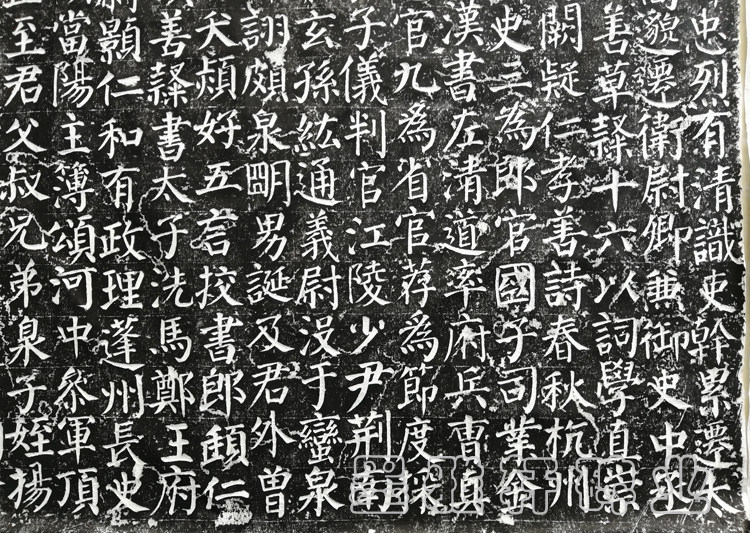 忠烈有清識吏幹累遷太
貌遷衛尉卿兼御史中丞
善草隸十六以詞學直崇
闕疑仁孝善詩春秋杭州
史三為郎官國子司業金
漢書左清道率府兵曹真
官九為省官荐為節度採
子儀判官江陵少尹荊南
玄孫紘通義尉沒于蠻泉
詡頗泉朙男誕及君外曾
夭頍好五言挍書郎頲仁
善隸書太子洗馬鄭王府
尉顥仁和有政理蓬州長史
當陽主簿頌河中參軍頂
至君父叔兄弟泉子姪揚